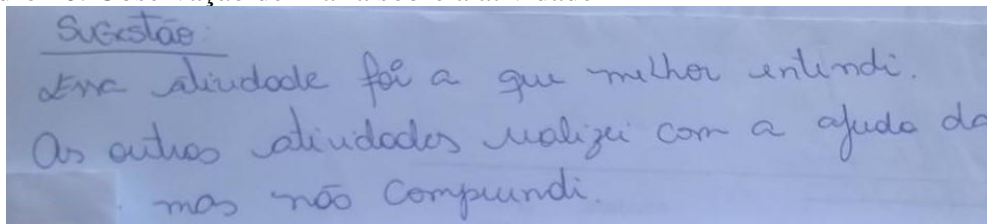 Sugestão:
Essa atividade foi a que melhor entendi.
As outras atividades realizei com a ajuda da
mas não compreendi.